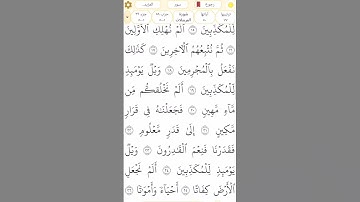 لِّلْمُكَذِّبِينَ ١٥ أَلَمْ نُهْلِكِ ٱلْأَوَّلِينَ
١٦ ثُمَّ نُتْبِعُهُمُ ٱلْآخِرِينَ ١٧ كَذَٰلِكَ
نَفْعَلُ بِٱلْمُجْرِمِينَ ١٨ وَيْلٌ يَوْمَئِذٍ
لِّلْمُكَذِّبِينَ ١٩ أَلَمْ نَخْلُقكُّم مِّن
مَّآءٍ مَّهِينٍ ٢٠ فَجَعَلْنَٰهُ فِى قَرَارٍ
مَّكِينٍ ٢١ إِلَىٰ قَدَرٍ مَّعْلُومٍ ٢٢
فَقَدَرْنَا فَنِعْمَ ٱلْقَٰدِرُونَ ٢٣ وَيْلٌ
يَوْمَئِذٍ لِّلْمُكَذِّبِينَ ٢٤ أَلَمْ نَجْعَلِ
ٱلْأَرْضَ كِفَاتًا ٢٥ أَحْيَآءً وَأَمْوَٰتًا ٢٦